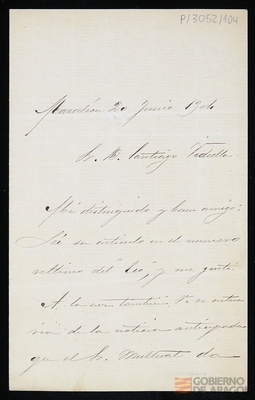 P/3052/104
Mazaleón 20 Junio 1904
Sr. D. Santiago Vidiella
Mi distinguido y buen amigo:
Leí su artículo en el número
último del "Eco", y me gustó.
A la vez también V. se entera
de la noticia anticipada
que el Sr. da
GOBIERNO
DE ARAGON